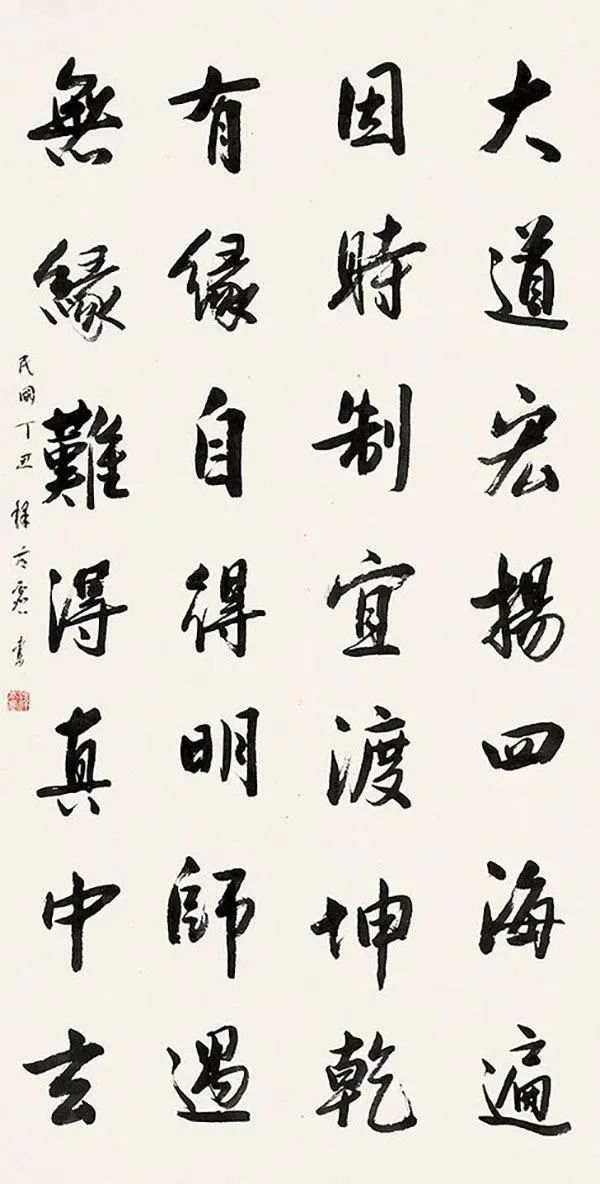 大道宏揚四海遍
因時制宜渡坤乾
有緣自得明師遇
無緣難得真中玄
民國丁丑 釋 書